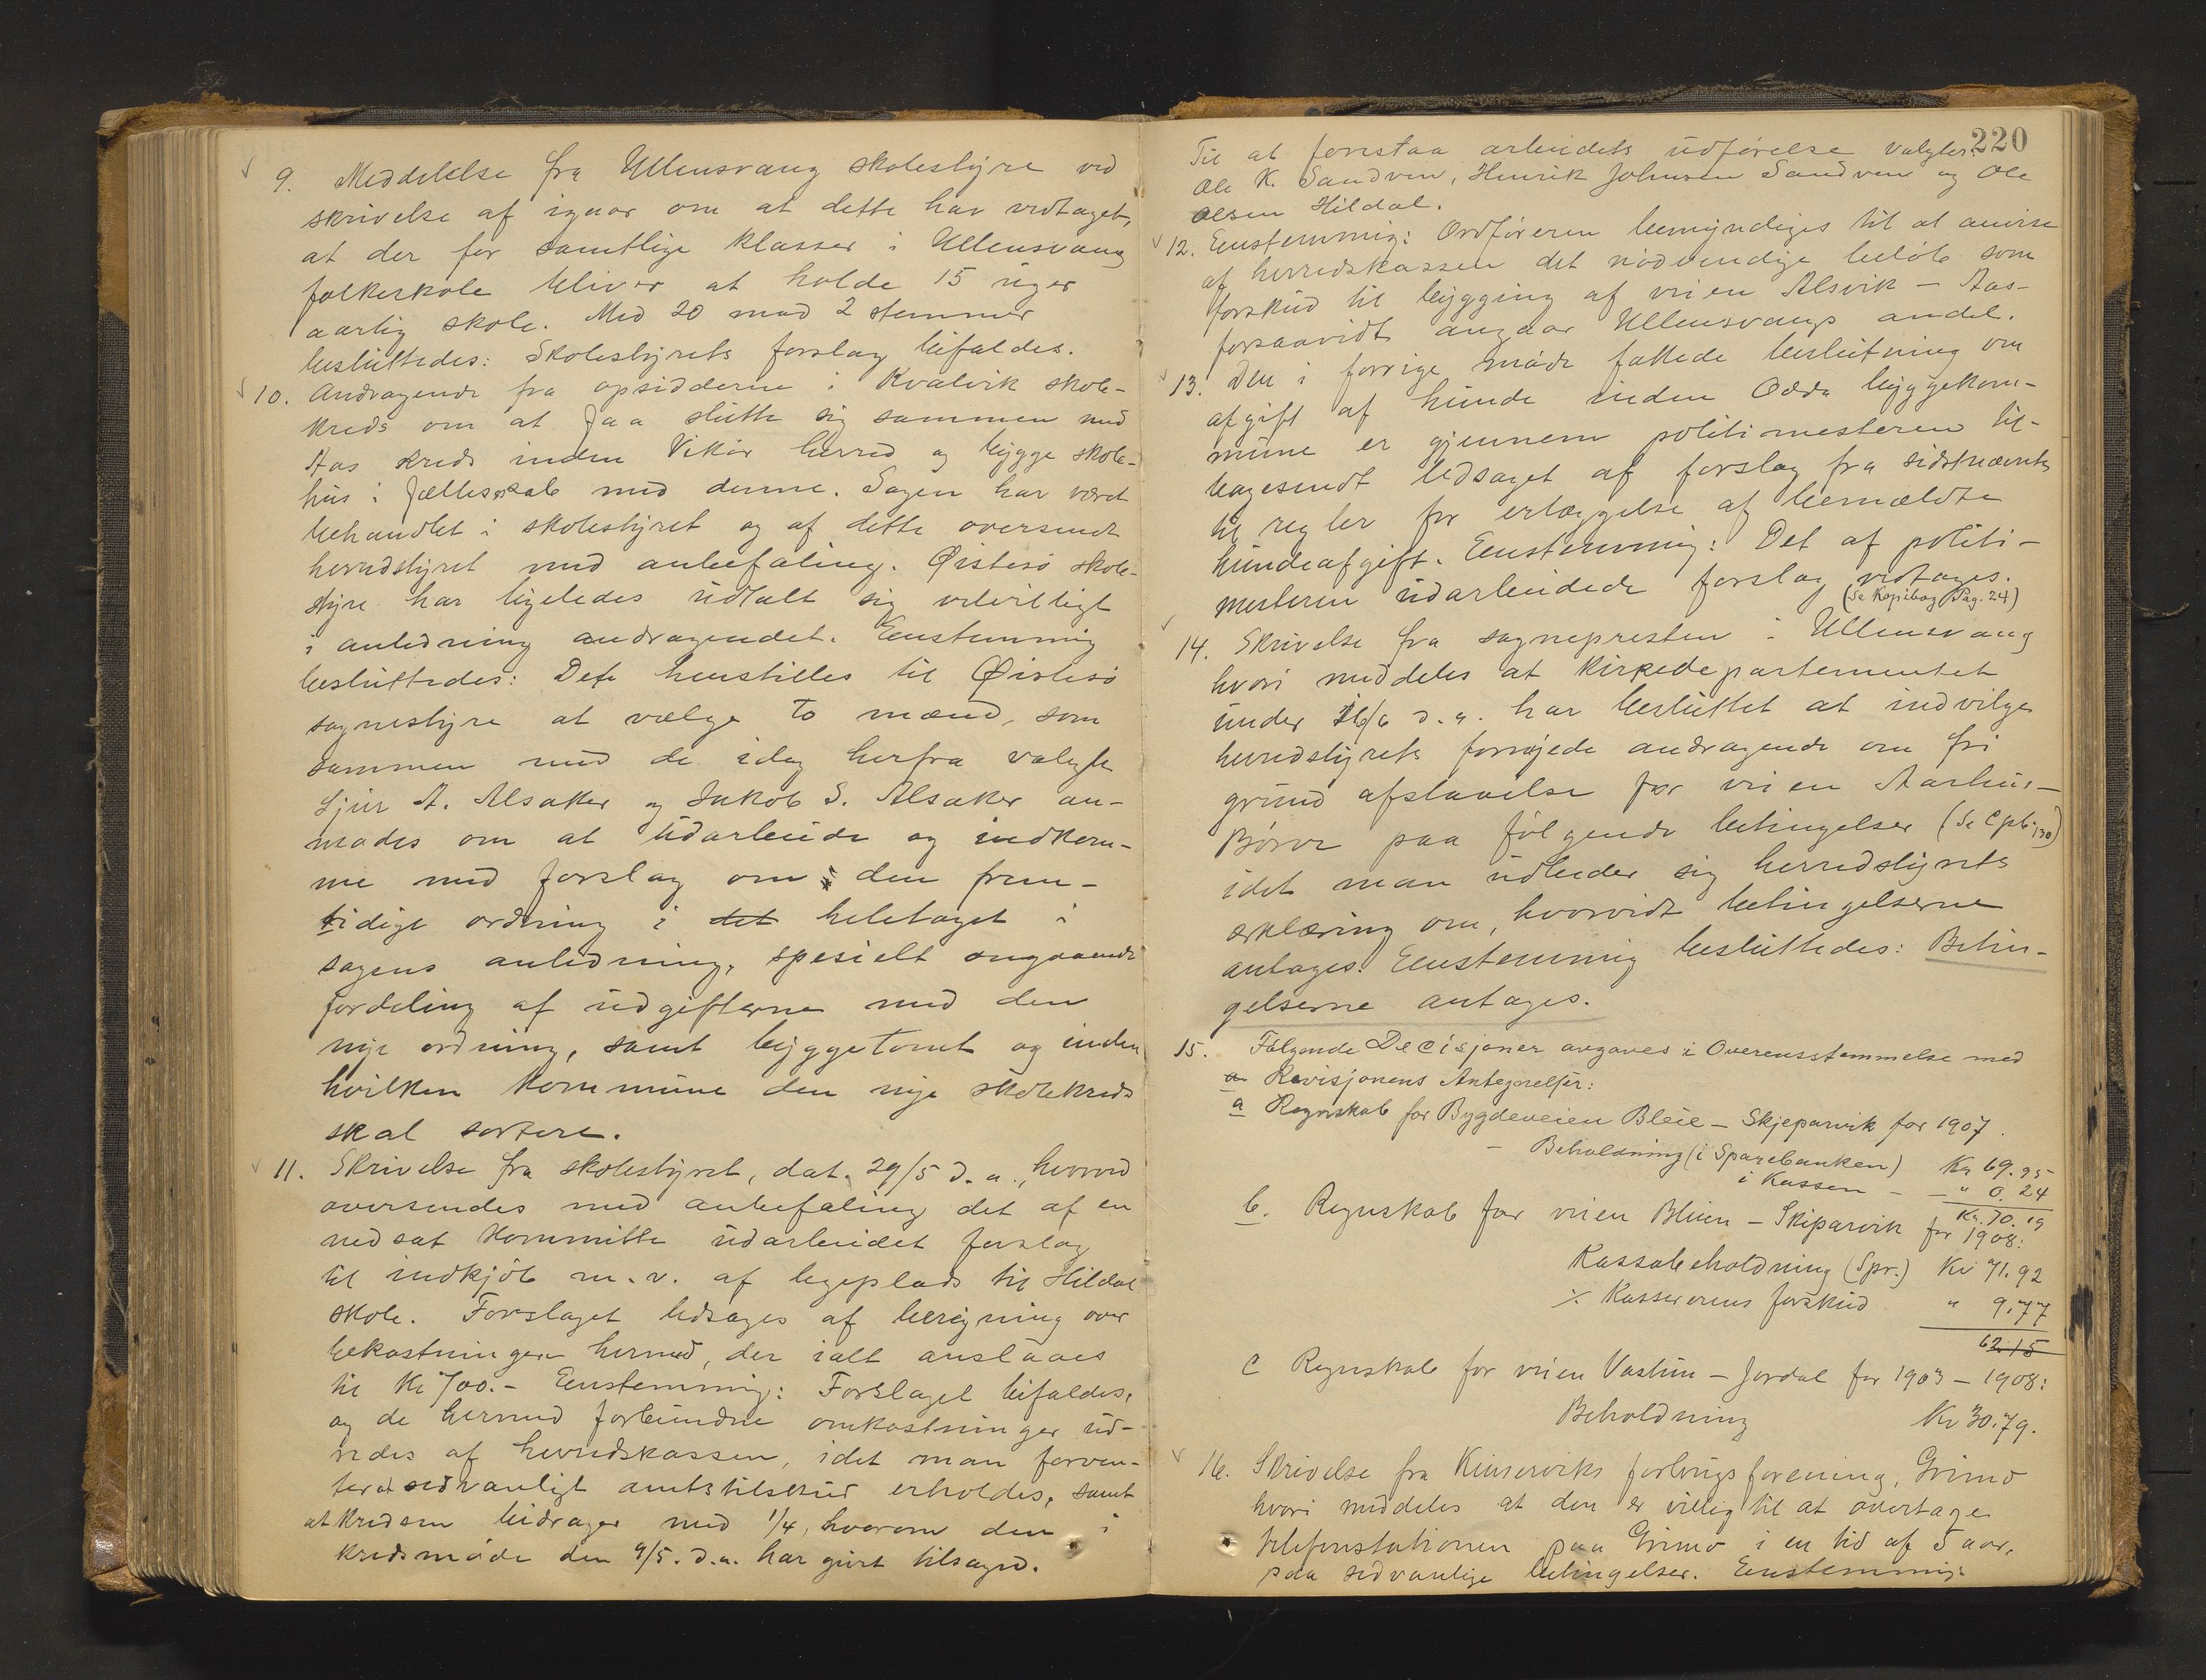 9. Meddelelse fra Ullensvang skolestyre ved
skrivelse af igaar om at dette har vedtaget,
at der for samtlige klasser i Ullensvang
folkeskole bliver at holde 15 uger
aarlig skole. Med 20 mod 2 stemmer
besluttedes: Skolestyrets forslag bifaldes.
10. Andragende fra opsidderne i Kvalvik skole-
kreds om at faa slutte sig sammen med
Aas kreds inden Vikør herred og bygge skole-
hus i fællesskab med denne. Sagen har været
behandlet i skolestyret og af dette oversendt
herredstyret med anbefaling. Østesø skole-
styre har ligeledes udtalt sig velvilligt
i anledning andragendet. Eenstemmig
besluttedes: Dete henstilles til Øistesø
sognestyre at vælge to mænd, som
sammen med de idag herfra valgte
Sjur A. Alsaker og Jakob S. Alsaker an-
modes om at udarbeide og indkom-
me med forslag om den frem-
tidige ordning i det heletaget i
sagens anledning, spesielt angaaende
fordeling af udgifterne med den
nye ordning, samt byggetomt og inden
hvilken kommune den nye skolekreds
skal sortere.
11. Skrivelse fra skolestyret, dat. 29/5 d. a., hvorved
oversendes med anbefaling det af en
nedsat kommitte udarbeidet forslag
til indkjøb m. v. af legeplads til Hildal
skole. Forslaget ledsages af beregning over
bekostningen hermed, der ialt anslaaes
til Kr 700.- Eenstemmig: Forslaget bifaldes,
og de hermed forbundne omkostninger ud-
redes af herredskassen, idet man forven-
ter at sedvanligt amtstilskud erholdes, samt
at kredsen bidrager med 1/4, hvorom den i
kredsmøde den 9/5. d.a. har givet tilsagn.
220
Til at forestaa arbeidets udførelse valgtes:
Ole K. Sandven, Henrik Johnsen Sandven og Ole
Olsen Hildal.
12. Eenstemmig: Ordføreren bemyndiges til at anvise
af herredskassen det nødvendige beløb som
forskud til bygging af veien Alsvik - Aas-
forsaavidt angaar Ullensvangs andel.
13. Den i forrige møde fattede beslutning om
afgift af hunde inden Odda byggekom-
mune er gjennem politimesteren til-
bagesendt ledsaget af forslag fra sidstnævnte
til regler for erlæggelse af bemældte
hundeafgift. Eenstemmig: Det af politi-
mesteren udarbeidede forslag vedtages.
(Se Kopibog Pag. 24)
14. Skrivelse fra sognepresten i Ullensvang
hvori meddeles at Kirkedepartementet
under 16/6 d. a. har besluttet at indvilge
herredstyrets fornyede andragende om fri
grund afstaaelse for veien Aarhus-
Børve paa følgende betingelser (Se Cpb. 130)
idet man udbeder sig herredstyrets
erklæring om, hvorvidt betingelserne
antages. Eenstemmig besluttedes: Betin-
gelserne antages.
15. Følgende Decisjoner avgaves i Overensstemmelse med
a Revisjonens Antegnelser:
a Regnskab for Bygdeveien Bleie - Skjeparvik for 1907.
- Beholdning (i Sparebanken) Kr 69.95
i Kassen - - " 0.24
Kr. 70.19
b. Regnskab for veien Bleien - Skiparvik for 1908:
Kassabeholdning (Spr.) Kr 71.92
÷ Kassererens forskud " 9.77
62.15
C Regnskab for veien Vastun - Jordal for 1903 - 1908:
Beholdning Kr 30.79.
16. Skrivelse fra Kinserviks forbrugsforening, Grimo
hvori meddeles at den er villig til at overtage
telefonstationen paa Grimo i en tid af 5 aar,
paa sedvanlige betingelser. Eenstemmig: